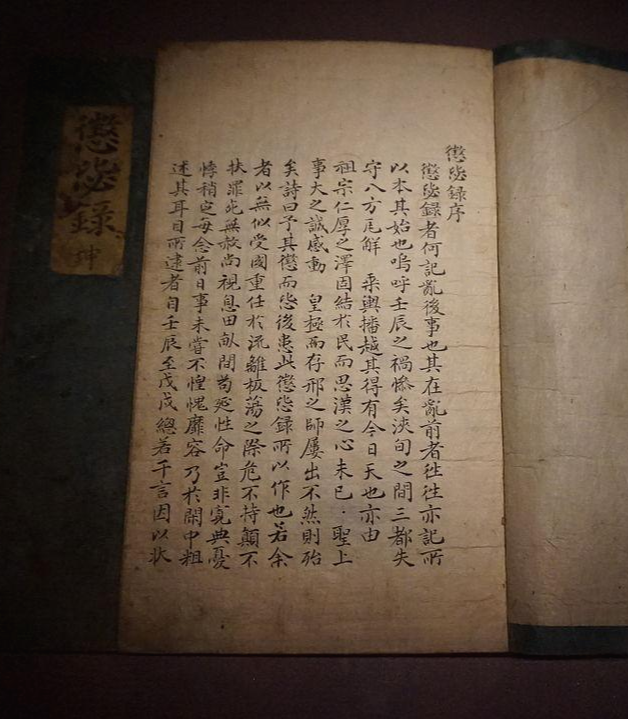 懲毖錄序
懲毖錄者何記亂後事也其在亂前者徃徃亦記所
以本其始也嗚呼壬辰之禍慘矣浹旬之間三都失
守八方瓦解 乘輿播越其得有今日天也亦由
祖宗仁厚之澤固結於民而思漢之心未已 聖上
事大之誠感動 皇極而存邢之師屢出不然則殆
矣詩曰予其懲而毖後患此懲毖錄所以作也若余
者以無似受國重任於流離板蕩之際危不持顛不
扶罪死無赦尚視息田畝間苟延性命豈非寬典憂
悸稍定每念前日事未嘗不惶愧靡容乃於閑中粗
述其耳目所逮者自壬辰至戊戌總若干言因以狀
懲毖錄
坤